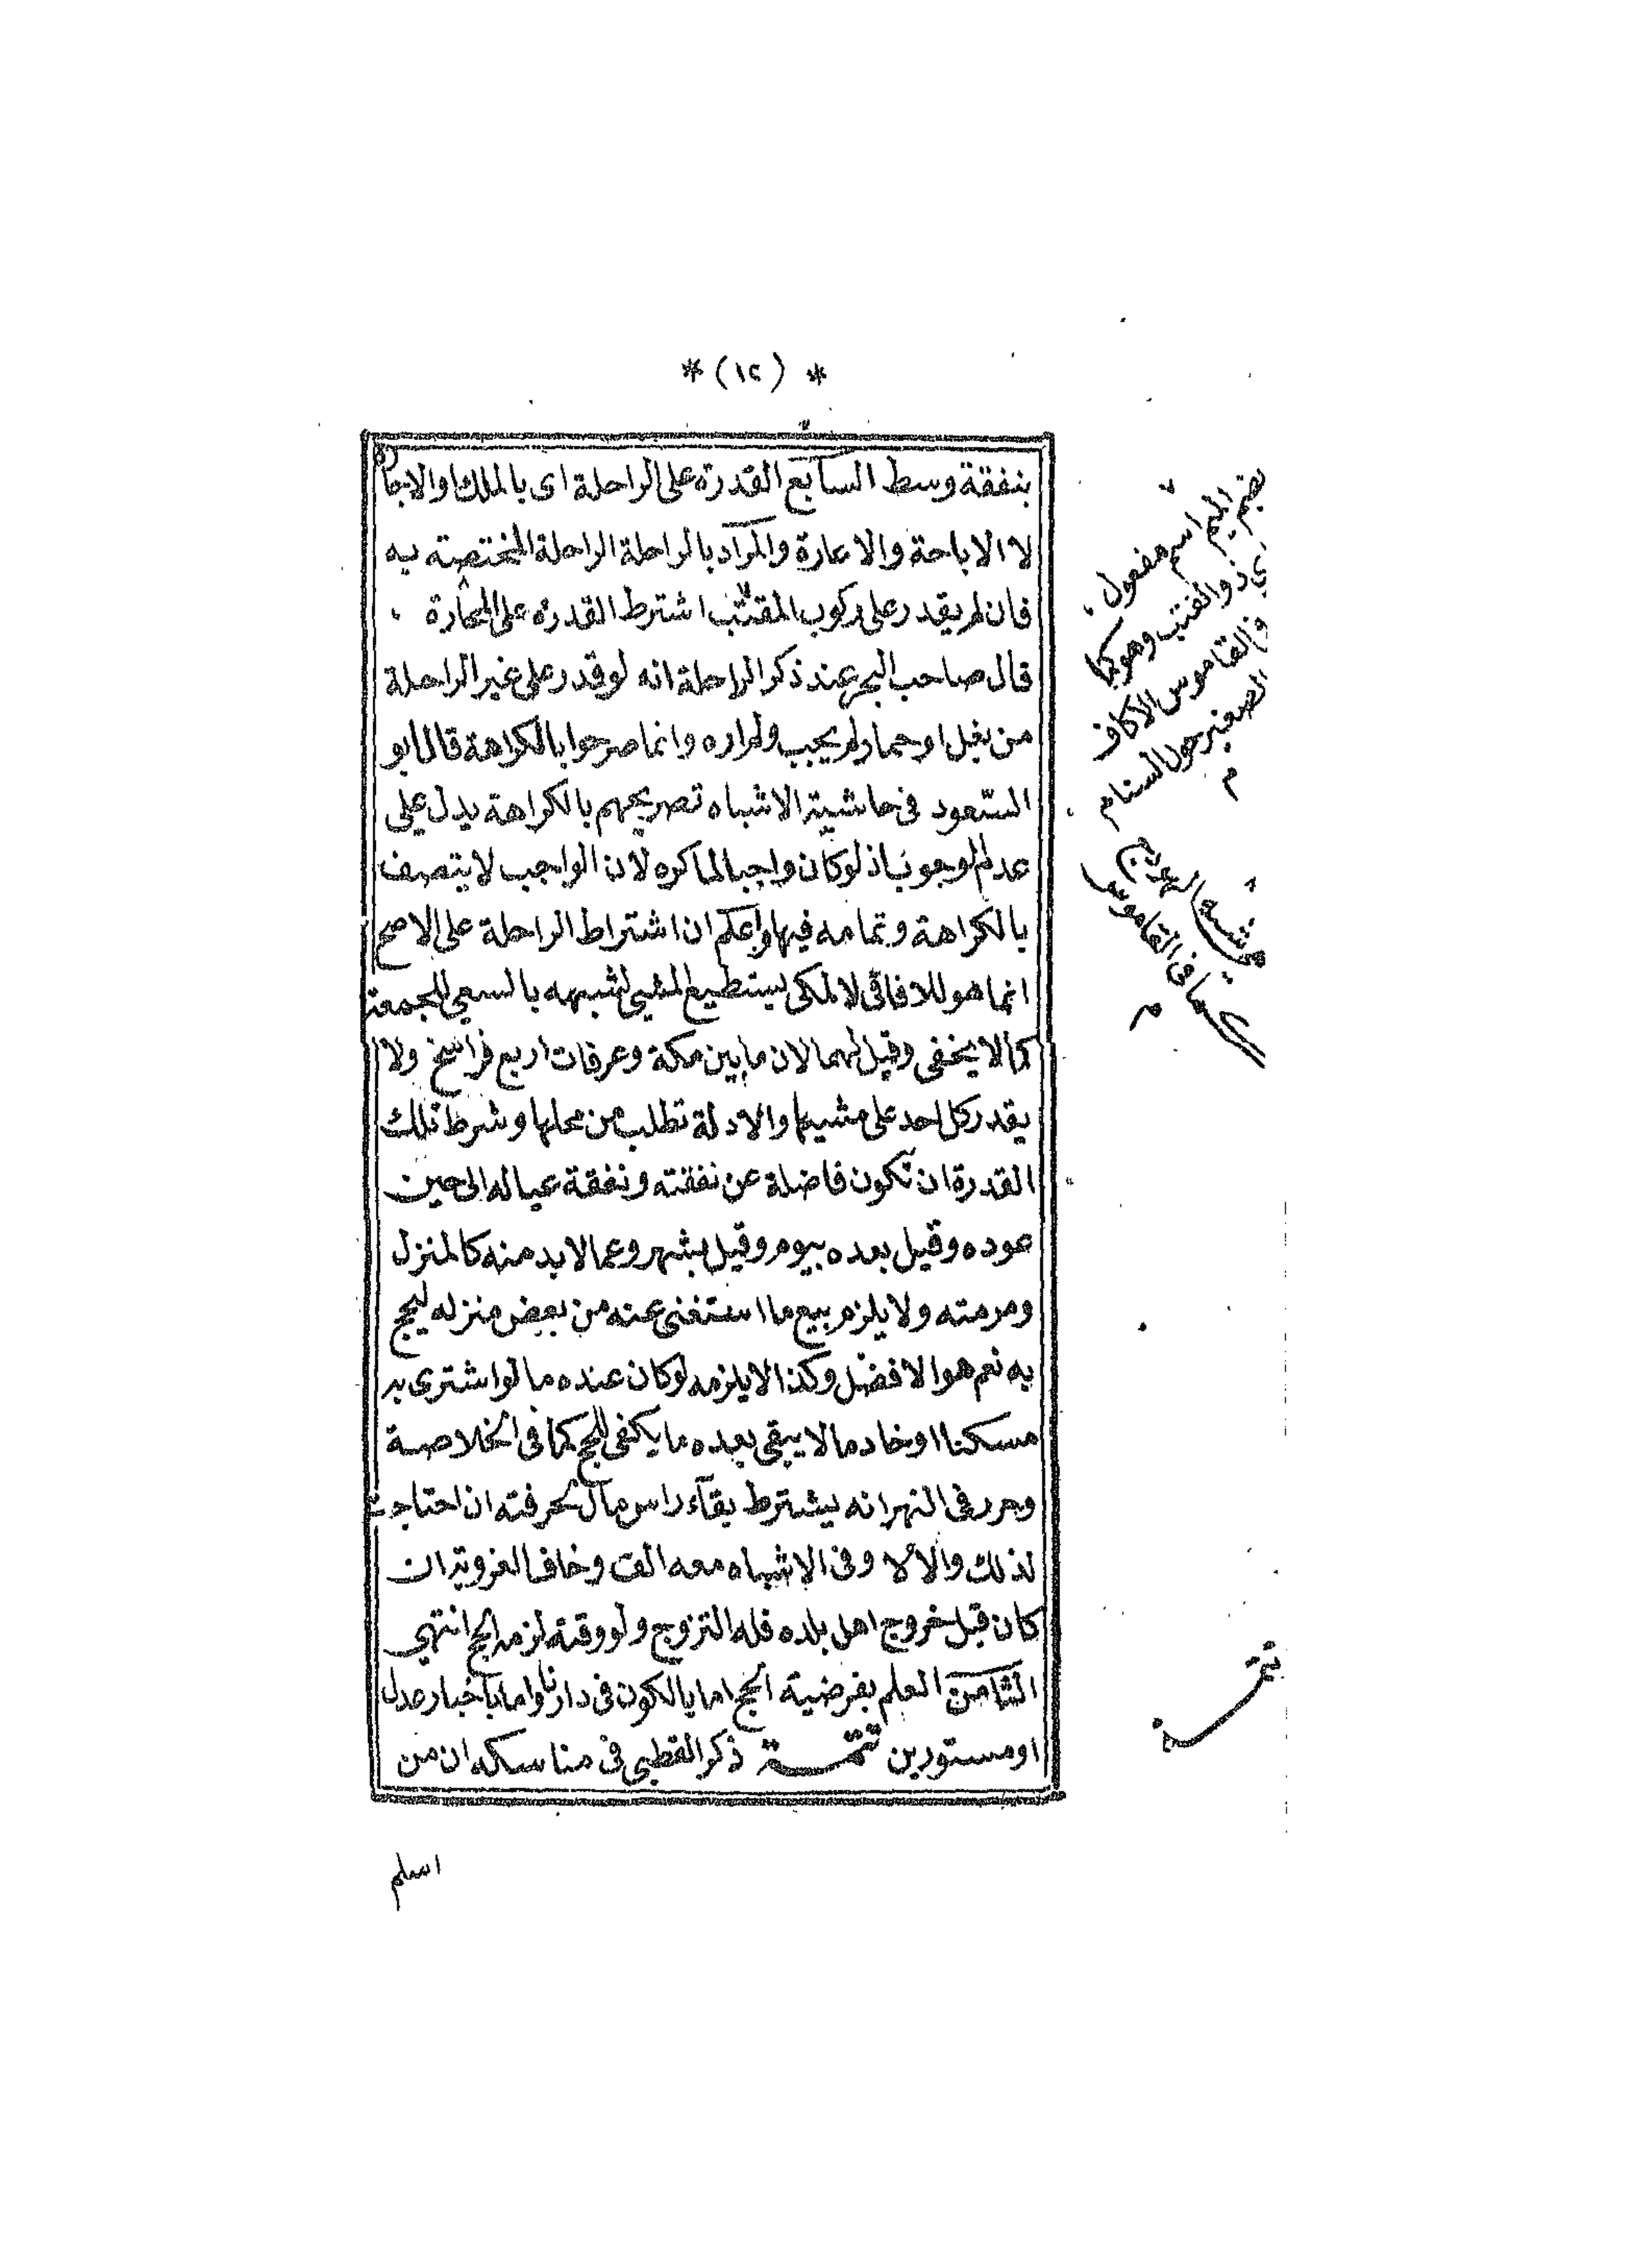 *(١٢)*
بنفقة وسط السابع القدرة على الراحلة اى بالملك او الاجارة
لا الاباحة والاعارة والمراد بالراحلة الراحلة المختصة به
فان لم يقدر على ركوب المقتب اشترط القدره على المحارة
قال صاحب البحر عند ذكر الراحلة انه لو قدر على غير الراحلة
من بغل او حمار لم يجب ولم اره وانما صرحوا بالكراهة قال ابو
السعود فى حاشية الاشباه تصريحهم بالكراهة يدل على
عدم الوجوب اذ لو كان واجبا لما كره لان الواجب لا يتصف
بالكراهة وتمامه فيها واعلم ان اشتراط الراحلة على الاصح
انما هو للافاقى لا لمكى يستطيع المشى لشبهه بالسعى للجمعة
كما لا يخفى وقيل لهما لان ما بين مكة وعرفات اربع فراسخ ولا
يقدر كل احد على مشيها والادلة تطلب من محلها وشرط تلك
القدرة ان تكون فاضلة عن نفقته ونفقة عياله الى حين
عوده وقيل بعده بيوم وقيل بشهر وعما لا بد منه كالمنزل
ومرمته ولا يلزم بيع ما استغنى عنه من بعض منزله ليحج
به نعم هو الافضل وكذا لا يلزمه لو كان عنده ما لو اشترى به
مسكنا او خادما لا يبقى بعده ما يكفى للحج كما فى الخلاصة
وحرر فى النهر انه يشترط بقآء راس مال لحرفته ان احتاجت
لذلك والا لا وفى الاشباه معه الف وخاف العزوبة ان
كان قبل خروج اهل بلده فله التزوج ولو وقته لزمه الحج انتهى
الثامن العلم بفرضية الحج اما بالكون فى دارنا واما باخبار عدل
او مستورين تتمة ذكر القطبى فى مناسكه ان من
اسلم
بضم الميم اسم مفعول
اي ذو القتب وهو كما
فى القاموس الاكاف
الصغير حول السنام
م
شبه الهودج
كما فى القاموس
م
تتمة